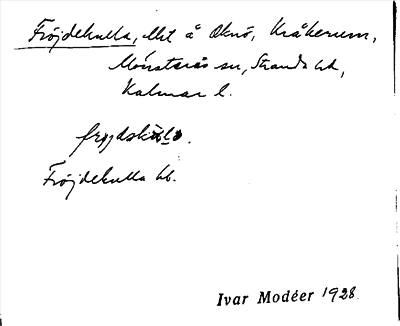 Fröjdekulla, lht å Oknö, Kråkerum,
Mönsterås sn, Stranda hd,
Kalmar l.
Fröjdekulla hb.
Ivar Modéer 1928.